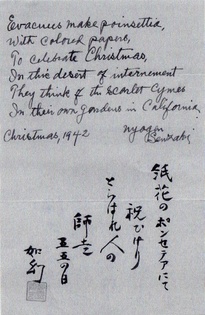 Evacuees make poinsettia,
With colored papers,
To celebrate Christmas,
In this desert of internement
They think of the scarlet Cymes
In their own gardens in California
Christmas, 1942
Nyogen
Senzaki
紙花の ポンセテアにて
祝ひけり
とらはれ人の
の日
如幻